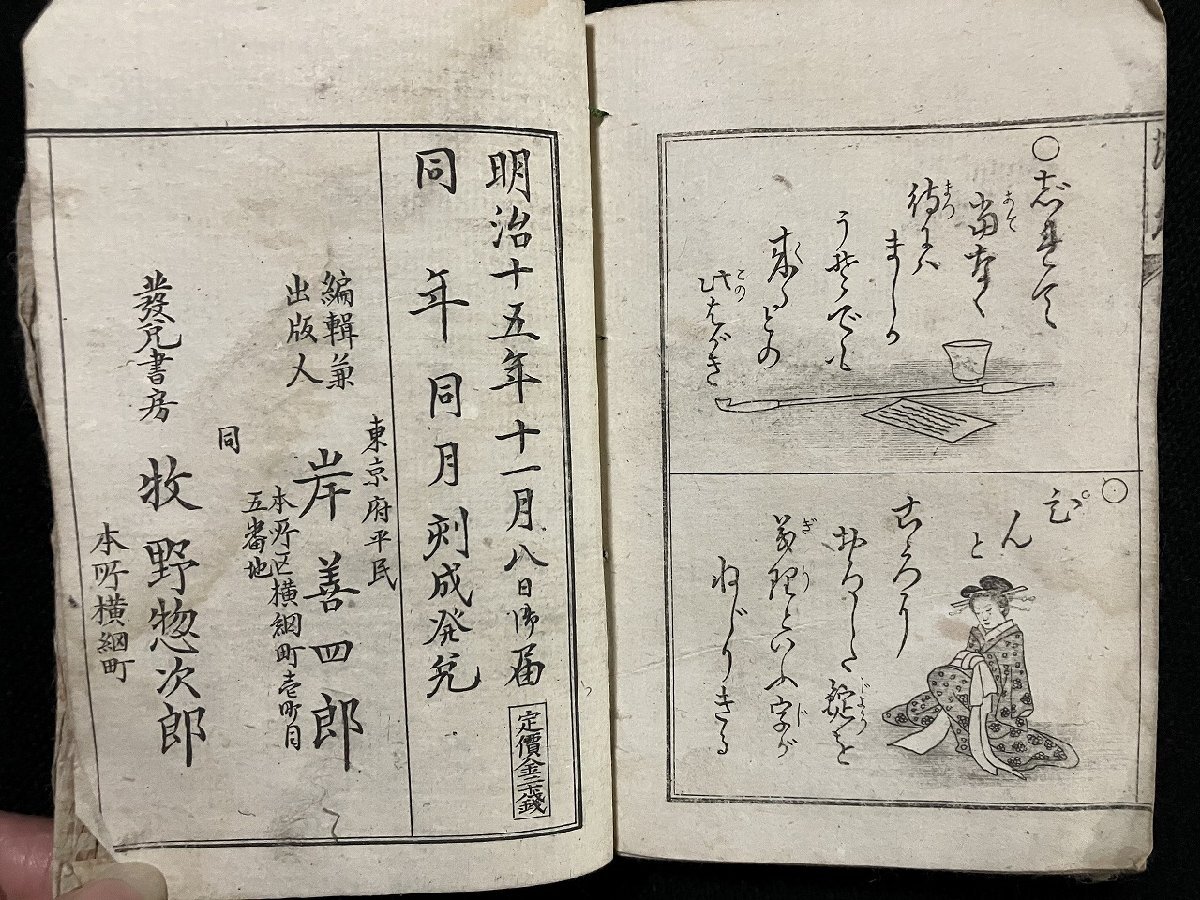 ○じれて
当なく
あて
待
まつ
ましか
うそでも
来るとの
く
此はがき
この
○ぴん
と
こゝろに
おろした錠を
じよう
義理といふ字が
ぎり じ
ねじりきる
明治十五年十一月八日御届
定價金
同年同月刻成発兌
東京府平民
編輯兼
出版人
岸善四郎
本所区横綱町壱町目
五番地
同
發兌書房
牧野惣次郎
本所横綱町